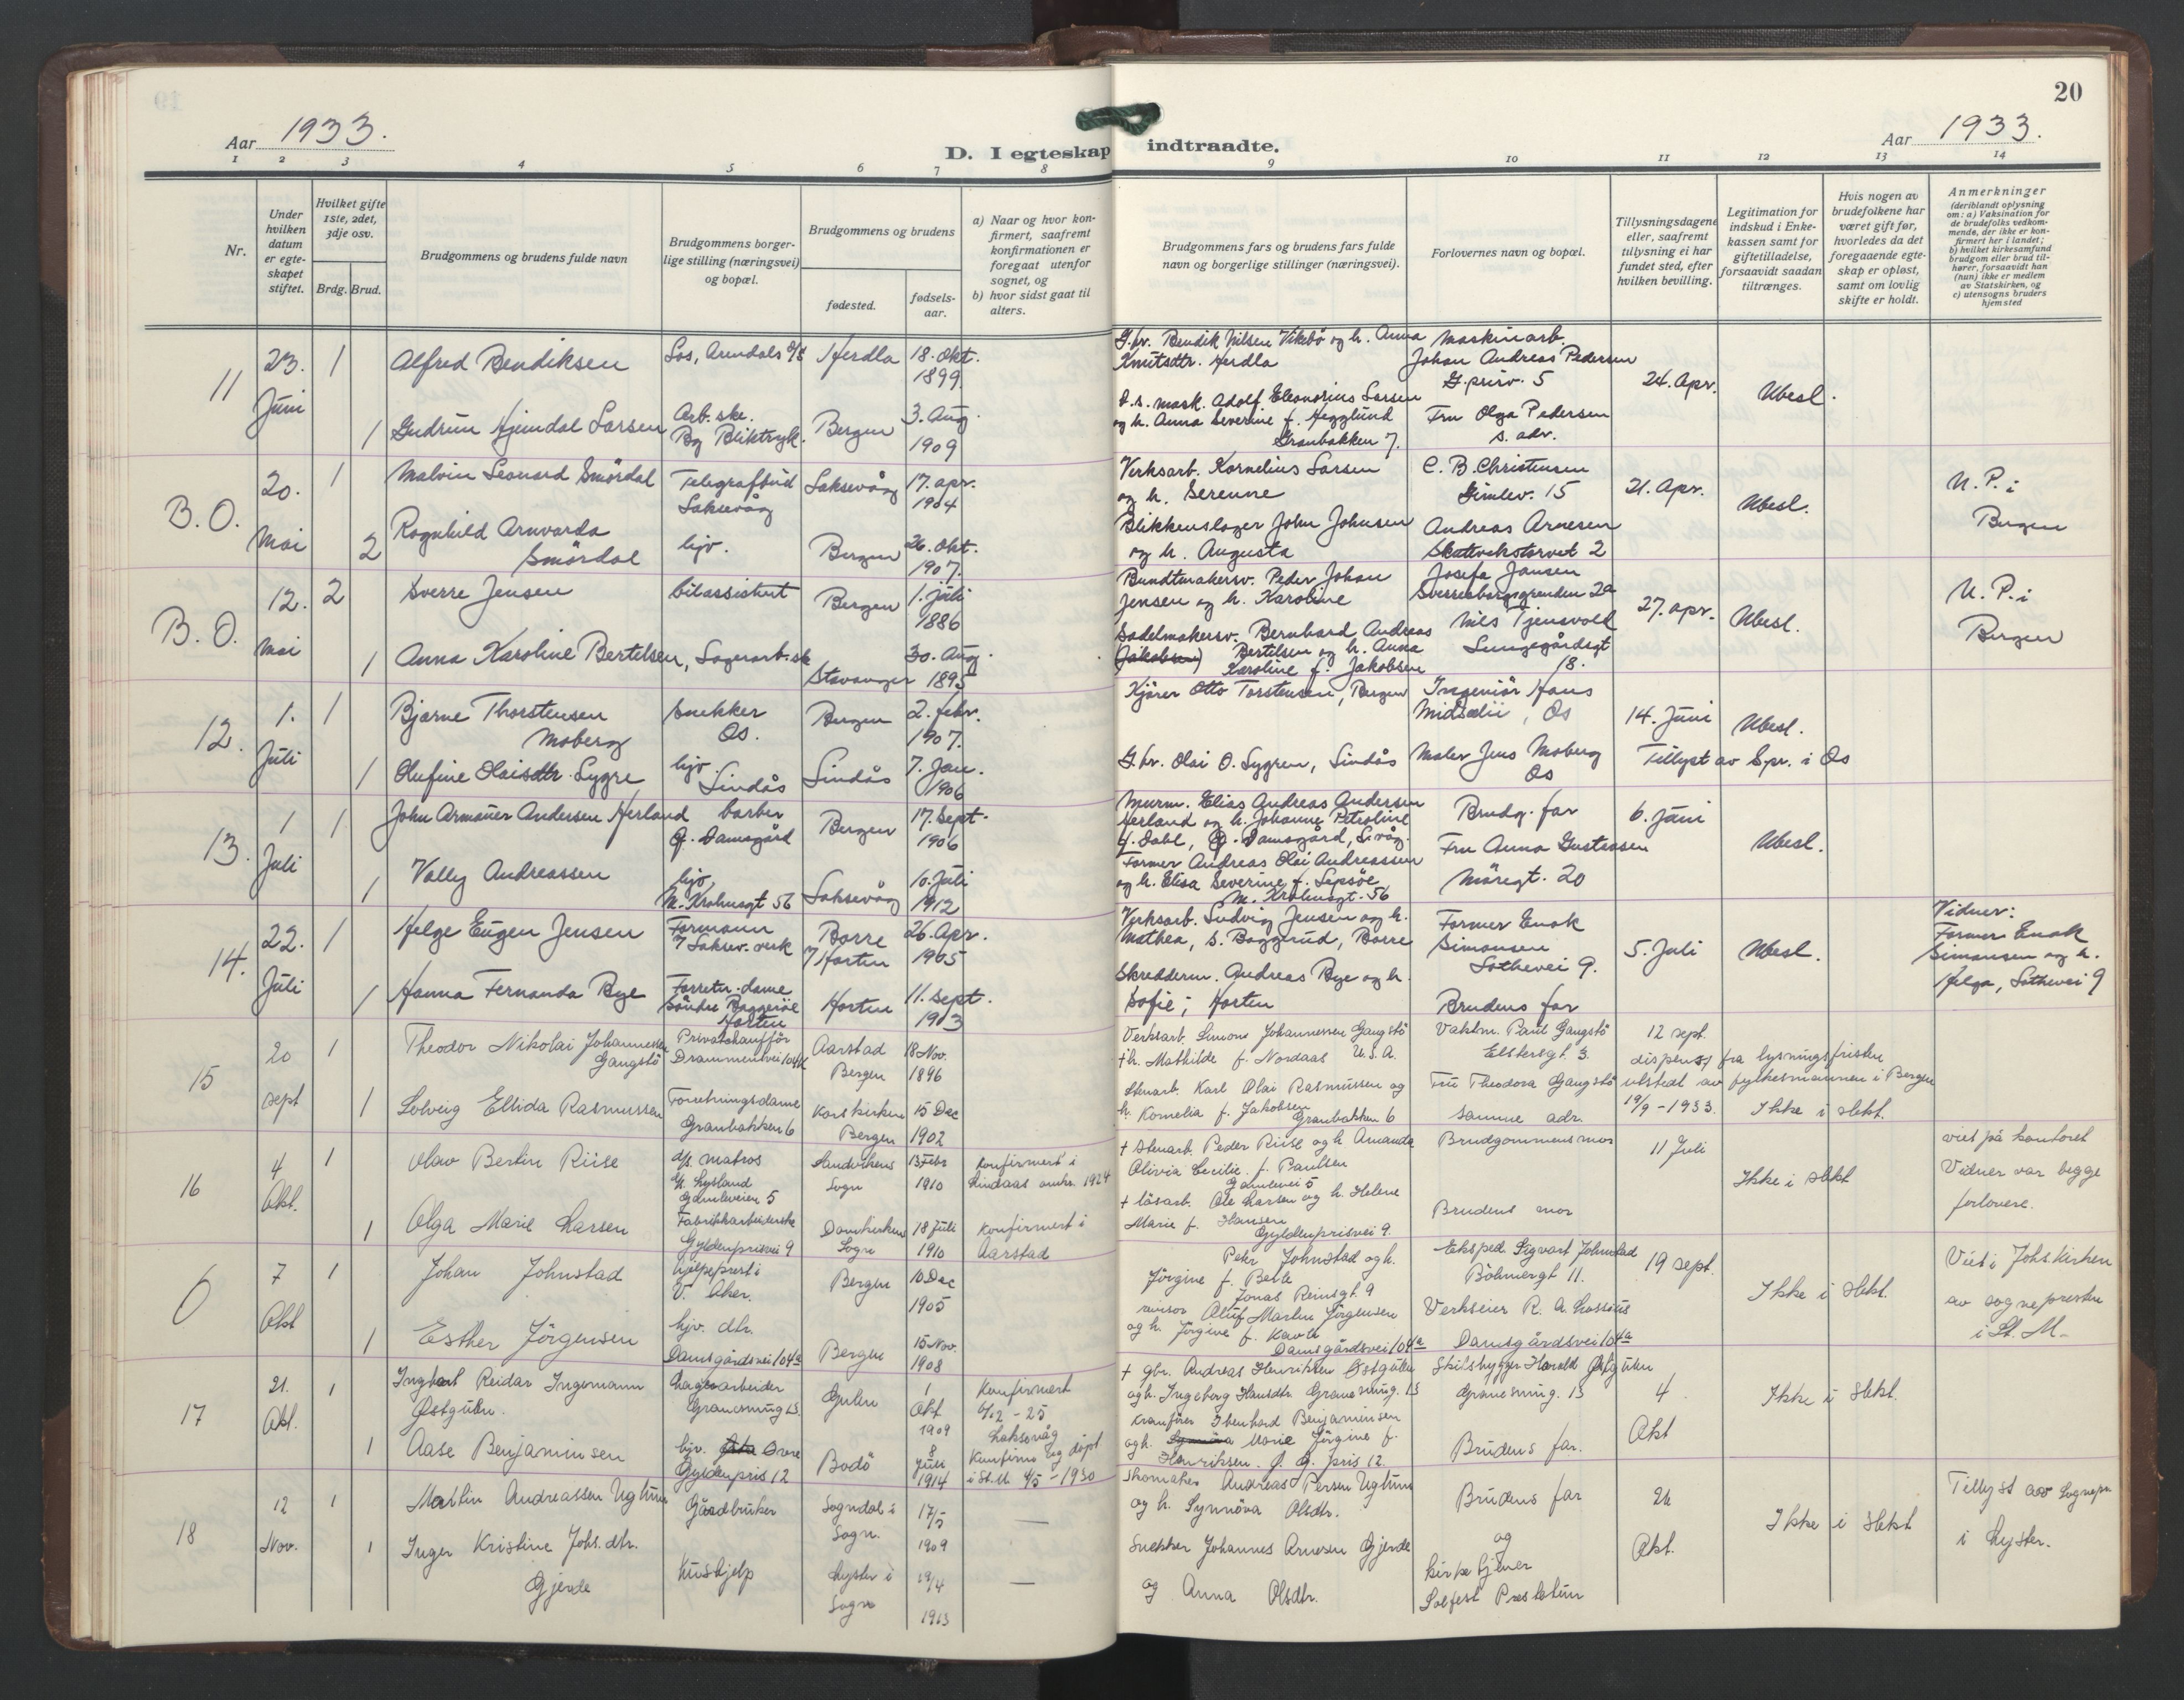 20
Aar 1933.
D. I egteskap indtraadte.
Aar 1933.
1 2 3 4 5 6 7 8 9 10 11 12 13 14
Nr.
Under hvilken datum er egteskapet stiftet.
Hvilket gifte 1ste, 2det, 3dje osv.
Brdg. Brud.
Brudgommens og brudens fulde navn
Brudgommens borgerlige stilling (næringsvei) og bopæl.
Brudgommens og brudens
fødested.
fødselsaar.
a) Naar og hvor konfirmert, saafremt konfirmationen er foregaat utenfor sognet, og
b) hvor sidst gaat til alters.
Brudgommens fars og brudens fars fulde navn og borgerlige stillinger (næringsvei).
Forlovernes navn og bopæl.
Tillysningsdagene eller, saafremt tillysning ei har fundet sted, efter hvilken bevilling.
Legitimation for indskud i Enkekassen samt for giftetilladelse, forsaavidt saadan tiltrænges.
Hvis nogen av brudefolkene har været gift før, hvorledes da det foregaaende egteskap er opløst, samt om lovlig skifte er holdt.
Anmerkninger
(deriblandt oplysning om: a) Vaksination for de brudefolks vedkommende, der ikke er konfirmert her i landet;
b) hvilket kirkesamfund brudgom eller brud tilhører, forsaavidt han (hun) ikke er medlem av Statskirken, og
c) utensogns bruders hjemsted
11
23. Juni
1
Alfred Bendiksen
Herdla
18. Okt. 1899
G.br. Bendik Nilsen Vikebø og h. Anna
Knutsdtr. Herdla
Maskinarb.
Johan Andreas Pedersen
G.priv. 5
24. Apr.
Ubesl.
1
Gudrun Hjundal Larsen
Arb.ske.
Bg Bliktryk.
Bergen
3. Aug. 1909
D.s. mask. Adolf Eleonorius Larsen
og h. Anna Severine f. Hegglund
Granbakken 7.
Fru Olga Pedersen
s. adr.
B.O.
20. Mai
1
Malvin Leonard Smørdal
Telegrafbud
Laksevåg
Laksevåg
17. apr. 1904
Verksarb. Kornelius Larsen
og h. Serenne
C. B. Christensen
Gimlev. 15
21. Apr.
Ubesl.
N.P. i
Bergen
2
Ragnhild Arnvarda
Smørdal
hjv.
Bergen
26. Okt. 1907.
Blikkenslager John Johnsen
og h. Augusta
Andreas Arnesen
Skutevikstorvet 2
B.O.
12. Mai
2
Sverre Jensen
bilassistent
Bergen
1. juli 1886
Bundtmakersv. Peder Johan
Jensen og h. Karoline
Josefa Jansen
Sverresborggrenden 2a
27. apr.
Ubesl.
N.P. i
Bergen
1
Anna Karoline Bertelsen, Lagerarb.ske
Stavanger
30. Aug. 1895
Sadelmakersv. Bernhard Andreas
(Jakobsen) Bertelsen og h. Anna
Karoline f. Jakobsen
Nils Tjensvoll
Lungegårdsgt
18.
12.
1. Juli
1
Bjarne Thorstensen
Moberg
Snekker
Os.
Bergen
2. febr. 1907.
Kjører Otto Torstensen, Bergen
Ingeniør Hans
Midsælii, Os
14. Juni
Ubesl.
1
Olufine Olaisdtr. Lygre
hjv.
Lindås
Lindås
7. Jan. 1906
G.br. Olai O. Lygren, Lindås
Maler Jens Moberg
Os
Tillyst av Spr. i Os
13.
1 Juli
1
John Armauer Andersen Herland
barber
Ø. Damsgård
Bergen
17. Sept. 1906
Murm. Elias Andreas Andersen
Herland og h. Johanne Petroline
f. Dahl, Ø. Damsgård, L.våg.
Brudg. far
6. Juni
Ubesl.
1
Vally Andreassen
hjv.
M. Krohnsgt 56
Laksevåg
10. Juli 1912
Former Andreas Olai Andreassen
og h. Elisa Severine f. Lepsøe
M. Krohnsgt. 56
Fru Anna Gustavsen
Møregt. 20
14.
22. Juli
1
Helge Eugen Jensen
Formann
7 Laksev. verk
Borre
7 Horten
26. Apr. 1905
Verksarb. Ludvig Jensen og h.
Mathea, s. Baggerud, Borre
Former Enok
Simonsen
Lothevei 9.
5. Juli
Ubesl.
Vidner:
Former Enok
Simonsen og h.
Helga, Lothevei 9
1
Hanna Fernanda Bye
Forretn.dame
Søndre Baggerøe
Horten
Horten
11. Sept. 1903
Skredderm. Andreas Bye og h.
Sofie; Horten
Brudens far
15
20 sept
1
Theodor Nikolai Johannessen
Gangstø
Privatchauffør
Drammensvei 104
Aarstad
Bergen
18 Nov. 1896
Verksarb. Simon Johannessen Gangstø
+ h. Mathilde f. Nordaas U.S.A.
Vaktm. Paul Gangstø
Elstersgt. 3.
12 sept.
dispens. fra lysningsfristen
1
Solveig Ellida Rasmussen
Forretningsdame
Granbakken 6
Korskirken
Bergen
15 Dec 1902
Stenarb. Karl Olai Rasmussen og
h. Kornelia f. Jakobsen
Granbakken 6
Fru Theodora Gangstø
samme adr.
utstedt av fylkesmannen i Bergen
19/9-1933.
Ikke i slekt.
16
4 Okt.
1
Olav Bertin Riise
d/s. matros
Gamleveien 5
Sandvikens
Sogn
13 Febr 1910
Konfirmert i
Lindaas omkr. 1924
+ Stenarb. Peder Riise og h. Amanda
Olivia Cecilie. f. Paulsen
Gamlevei 5
Brudgommens mor
11 Juli
Ikke i slekt
viet på kontoret
Vidner var begge
forlovere.
1
Olga Marie Larsen
Fabrikkarbeiderske
Gyldenprisvei 9
Domkirkens
Sogn
18 Juli 1910
Konfirmert i
Aarstad
+ løsarb. Ole Larsen og h. Helene
Marie f. Hansen
Gyldenprisvei 9.
Brudens mor
7 Okt
1
Johan Johnstad
hjelpeprest i
V. Aker.
Bergen
10 Dec 1905
Peter Johnstad og h.
Jørgine f. Belle
Jonas Reinsgt. 9
Eksped. Sigvart Johnstad
Böhmergt 11.
19 sept.
Ikke i slekt.
Viet i Johs.kirken
av sognepresten
i St. M.
1
Esther Jörgensen
hjv. dtr.
Damsgårdsvei 104a
Bergen
15 Nov. 1908
revisor Oluf Martin Jörgensen
og h. Jörgine f. Kavli
Damsgårdsvei 104a
Verkseier R. A. Lossius
Damsgårdsvei 104a
17
21. Okt.
1
Ingbart Reidar Ingemann
Østgulen.
Lagerarbeider
Granesmug. 13.
Gulen
1 Okt 1909
Konfirmert
6/12-25
Laksevåg
+ gbr. Andreas Henriksen Østgulen
og h. Ingeborg Hansdtr. Granesmug. 13
Skibsbygger Harald Østgulen
Granesmug. 13
4 Okt
Ikke i slekt.
1
Aase Benjaminsen
hjv. Øvre
Gyldenpris 12
Bodö
8 Juli 1914
Konfirm. og döpt
i St. M. 4/5-1930
Kranfører Ibenhard Benjaminsen
og h. Marie Jörgine f.
Henriksen. Ø. G. pris 12.
Brudens far.
18
12 Nov.
1
Martin Andreassen Uglum
Gårdbruker
Sogndal i
Sogn.
17/5 1909
—
Skomaker Andreas Persen Uglum
og h. Synnöva Olsdtr.
Brudens far
og
26 Okt.
Ikke i slekt
Tillyst av Sognepr.
i Lyster.
1
Inger Kristine Johs.dtr.
Gjerde
Hushjelp
Lyster i
Sogn
19/4 1913
—
Snekker Johannes Arnesen Gjerde
og Anna Olsdtr.
kirketjener
Solfest Prestetun